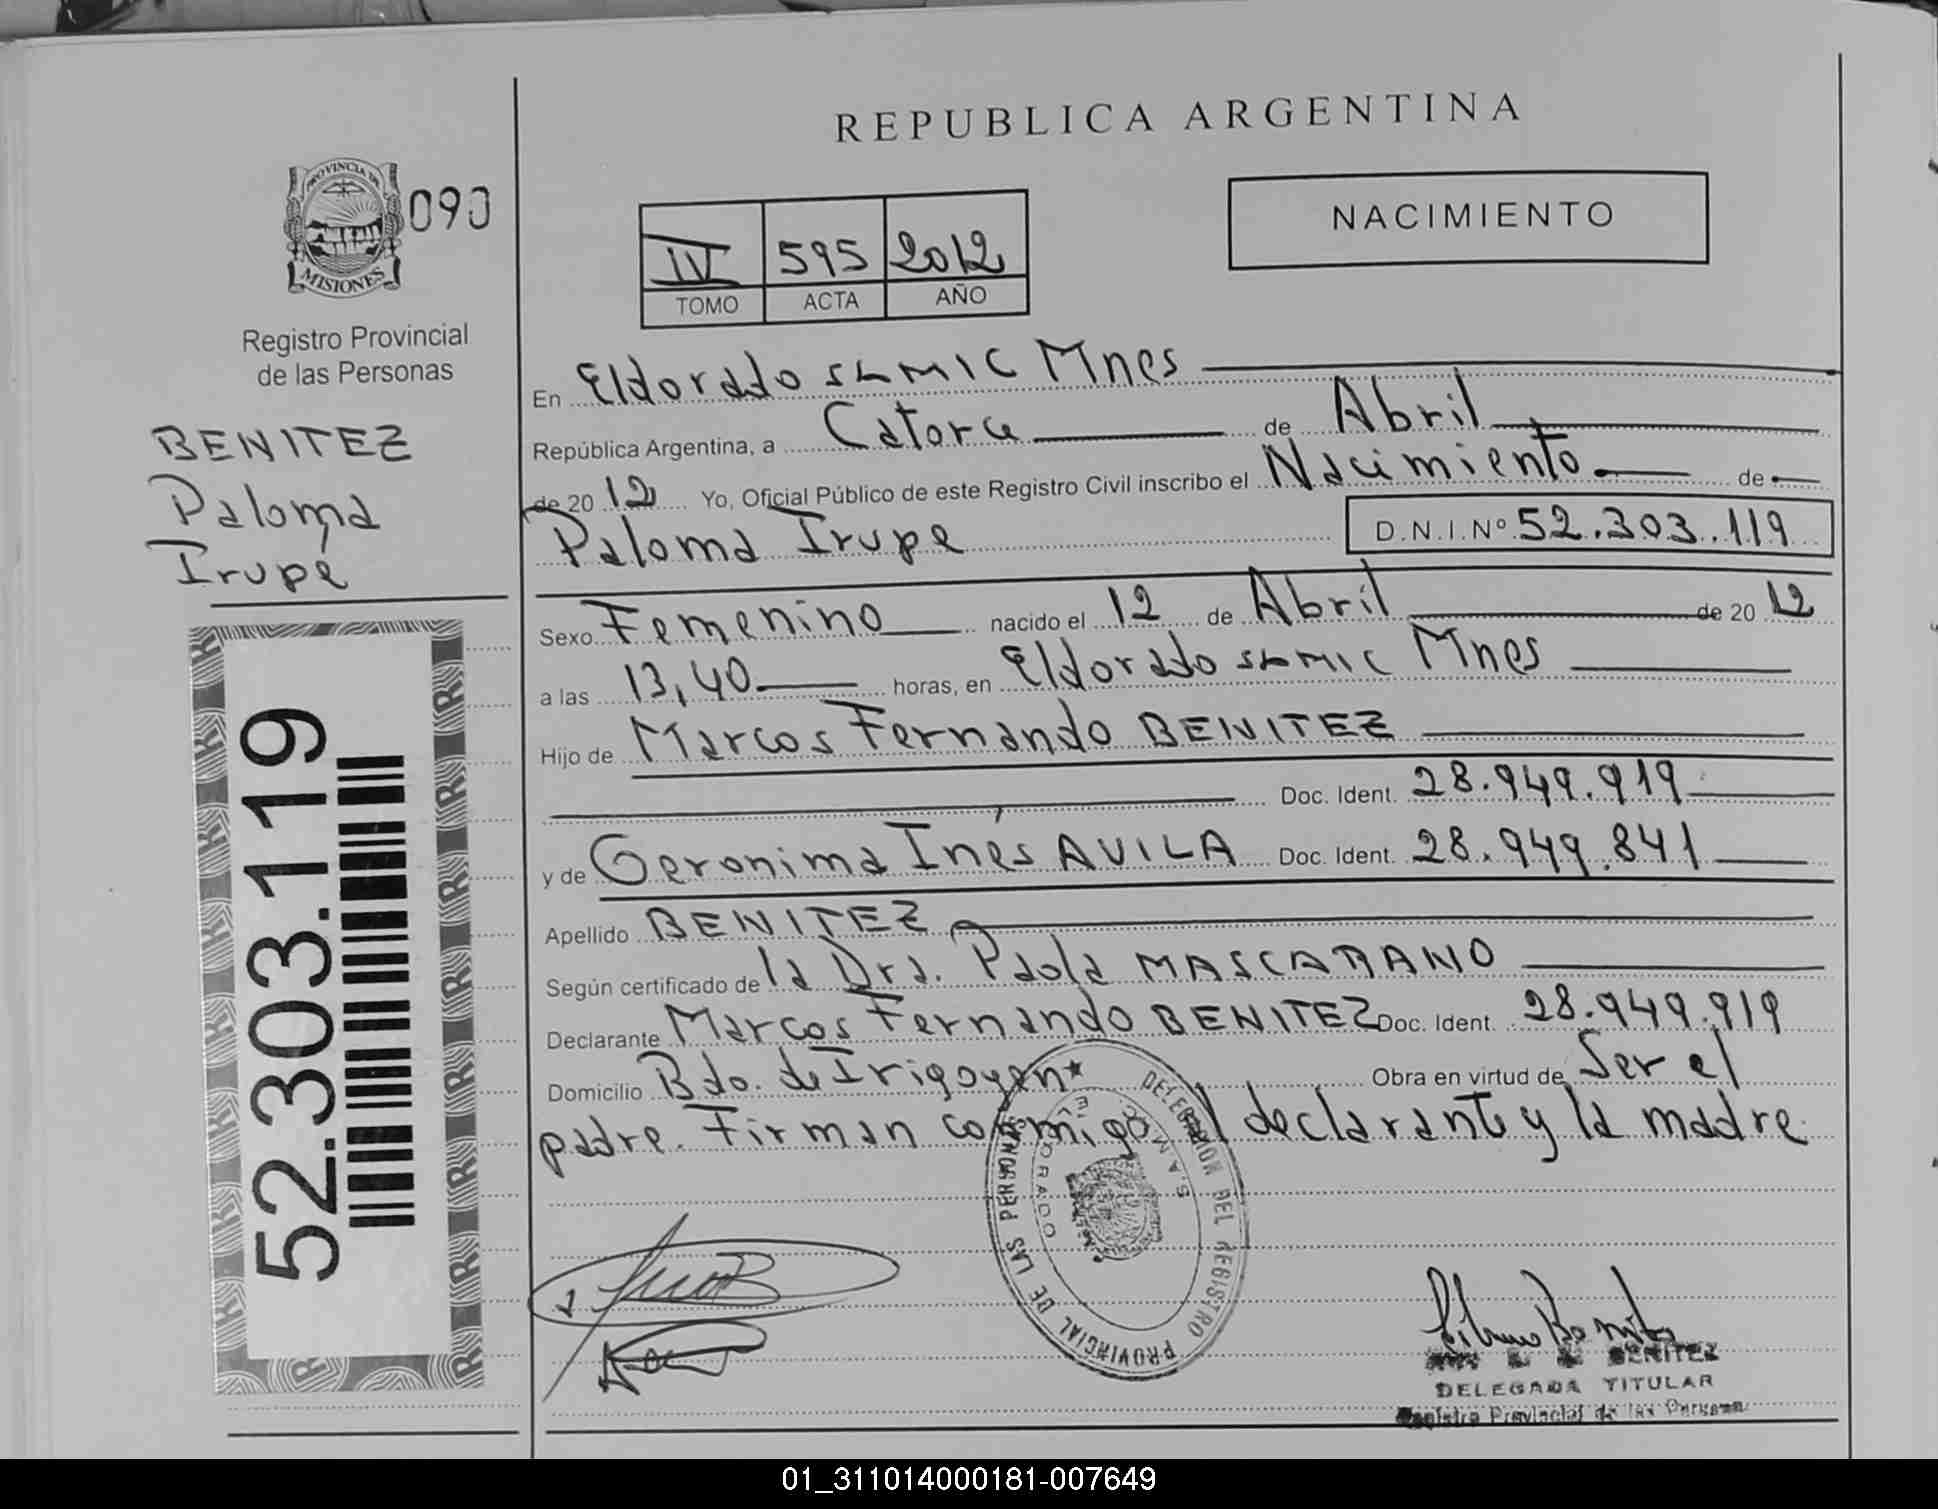 REPUBLICA ARGENTINA
PROVINCIA DE
MISIONES
090
Registro Provincial
de las Personas
BENITEZ
Paloma
Irupé
52.303.119
IV 595 2012
TOMO ACTA AÑO
NACIMIENTO
En Eldorado SAMIC Mnes
República Argentina, a Catorce de Abril
de 2012 Yo, Oficial Público de este Registro Civil inscribo el Nacimiento de
Paloma Irupe D.N.I.Nº 52.303.119
Sexo Femenino nacido el 12 de Abril de 2012
a las 13,40 horas, en Eldorado SAMIC Mnes
Hijo de Marcos Fernando BENITEZ
Doc. Ident. 28.949.919
y de Gerónima Inés AVILA Doc. Ident. 28.949.841
Apellido BENITEZ
Según certificado de la Dra. Paola MASCARANO
Declarante Marcos Fernando BENITEZ Doc. Ident. 28.949.919
Domicilio Bdo. de Irigoyen Obra en virtud de Ser el
padre. Firman conmigo el declarante y la madre.
DELEGACION DEL REGISTRO PROVINCIAL DE LAS PERSONAS
S.A.M.I.C. ELDORADO
BENITEZ
DELEGADA TITULAR
Registro Provincial de las Personas
01_311014000181-007649